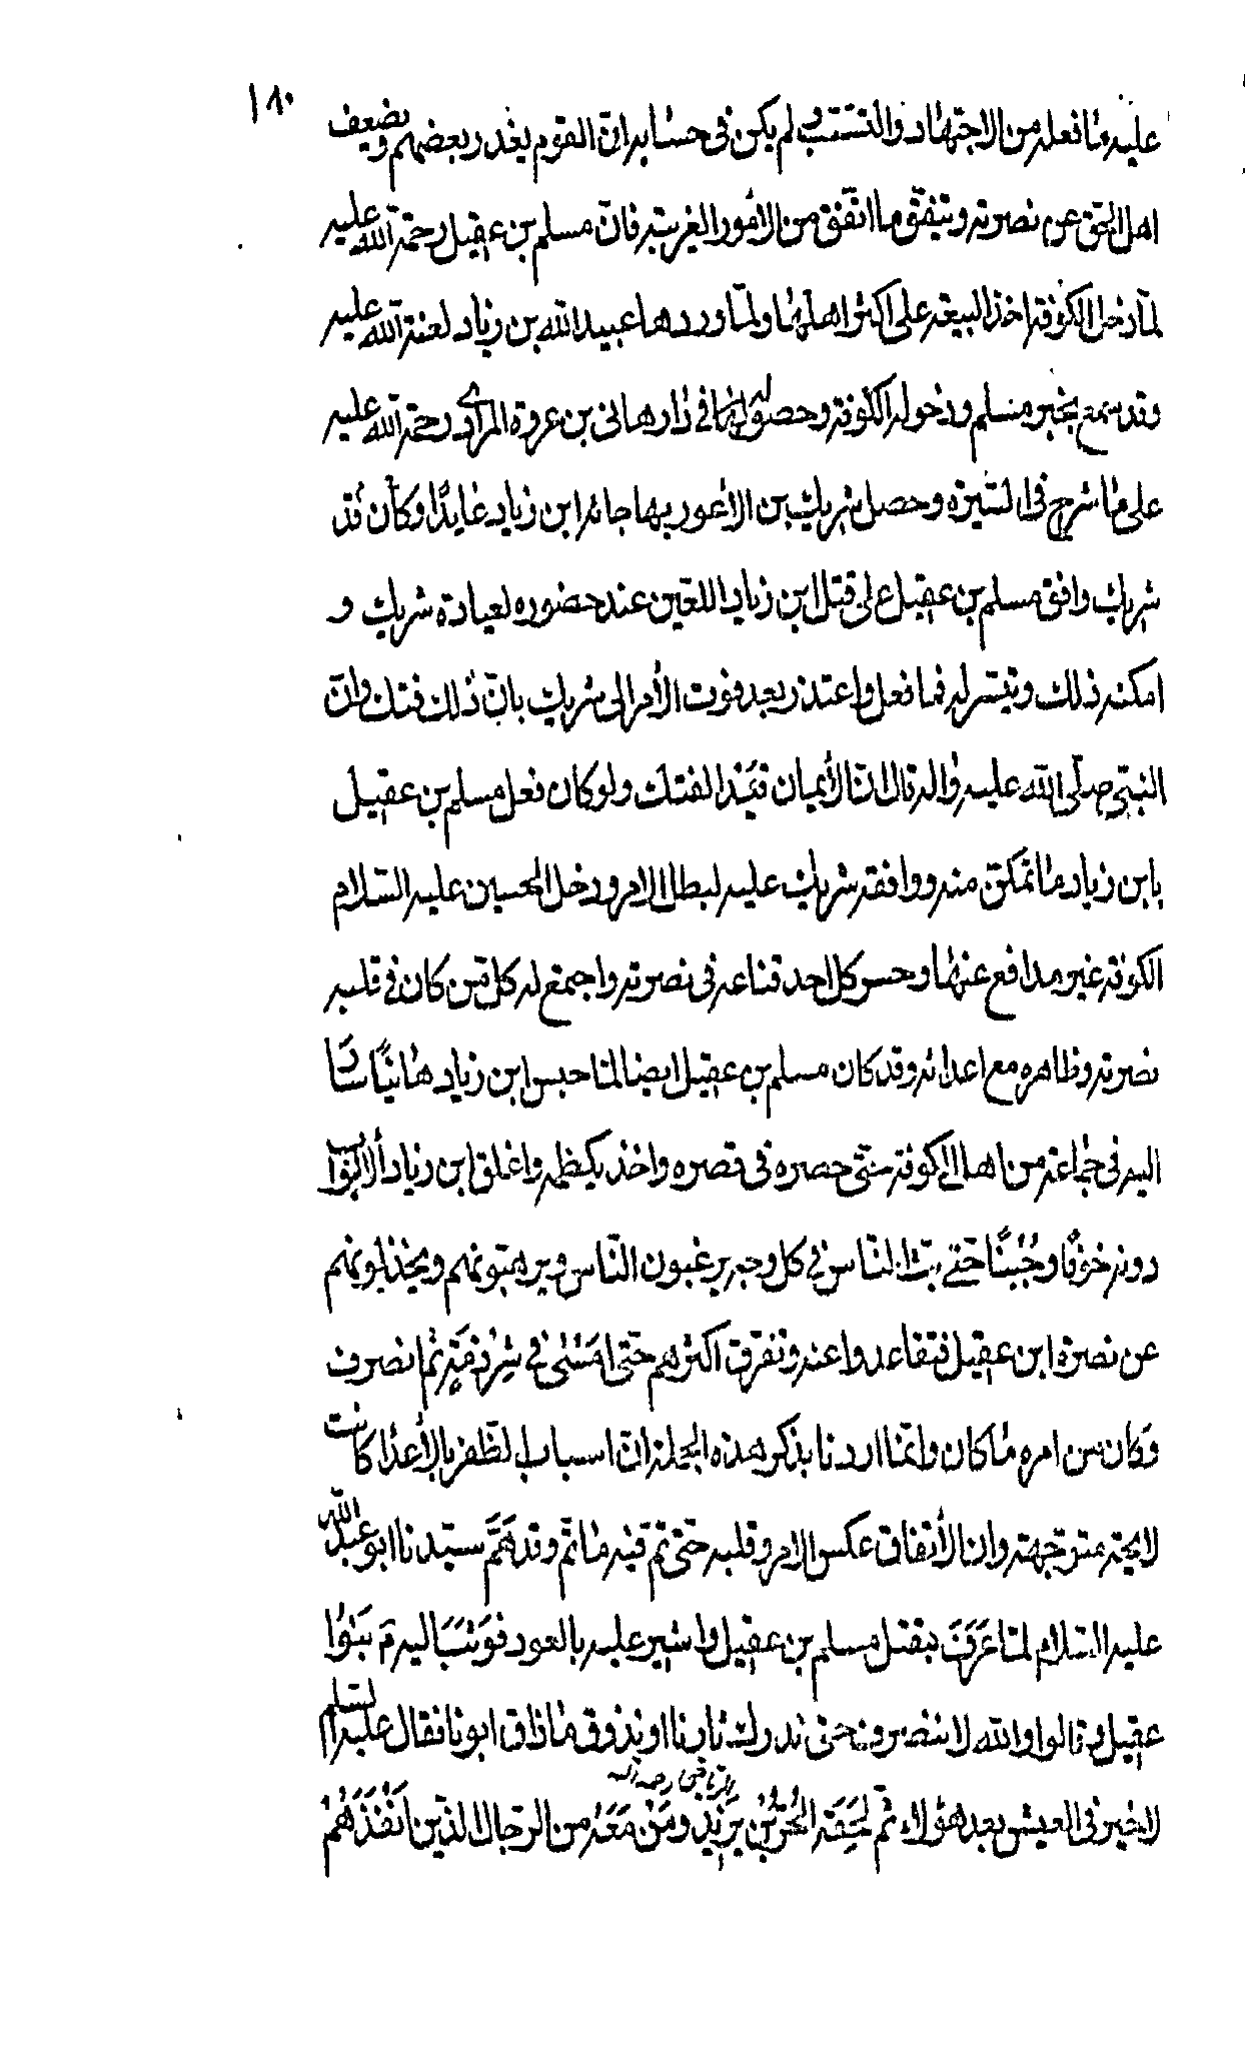 ١٨٠
عليه ما فعله من الاجتهاد والتسبب لم يكن في حسابه انّ القوم يغدر بعضهم ويضعف
اهل الحق عن نصرته ويتفق ما اتفق من الأمور الغريبة فانّ مسلم بن عقيل رحمة الله عليه
لمّا دخل الكوفة اخذ البيعة على اكثر اهلها ولمّا وردها عبيد الله بن زياد لعنة الله عليه
وقد سمع بخبر مسلم ودخوله الكوفة وحصوله في دار هاني بن عروة المرادي رحمة الله عليه
على ما شرح في السّيرة وحصل شريك بن الأعور بها جاءه ابن زياد عايدًا وكان قد
شريك وافق مسلم بن عقيل على قتل ابن زياد اللعين عند حضوره لعيادة شريك و
امكنه ذلك وتيسّر له فما فعل واعتذر بعد فوت الأمر الى شريك بانّ ذلك فتك وانّ
النبيّ صلّى الله عليه واله قال انّ الأيمان قيّد الفتك ولو كان فعل مسلم بن عقيل
بابن زياد ما تمكّن منه ووافقه شريك عليه لبطل الامر ودخل الحسين عليه السّلام
الكوفة غير مدافع عنها وحسر كل احد قناعه في نصرته واجتمع له كلّ من كان في قلبه
نصرته وظاهره مع اعدائه وقد كان مسلم بن عقيل ايضا لمّا حبس ابن زياد هانيًا سار
اليه في جماعة من اهل الكوفة حتى حصره في قصره واخذ بكظمه واغلق ابن زياد الأبواب
دونه خوفًا وجُبنًا حتى بثّ النّاس في كل وجه يرغبون النّاس ويرهبونهم ويخذلونهم
عن نصرة ابن عقيل فتقاعدوا عنه وتفرق اكثرهم حتى امسى في شرذمة ثم انصرف
وكان من امره ما كان وانّما اردنا بذكر هذه الجملة انّ اسباب الظفر بالأعداء كانت
لايحة متوجّهة وان الأتفاق عكس الامر وقلبه حتى تم فيه ما تمّ وقد همّ سيّدنا ابو عبد الله
عليه السّلام لمّا عَرَفَ بقتل مسلم بن عقيل واشير عليه بالعود فوَثَبَ اليه بنوا
عقيل وقالوا والله لا ننصرف حتى ندرك ثارنا او نذوق ما ذاق ابونا فقال عليه السّلم
لا خير في العيش بعد هؤلاء ثم لَحِقَه الحُرّ بن يَزيد ومَنْ مَعَهُ من الرّجال الذين اَنْفَذَهُمْ